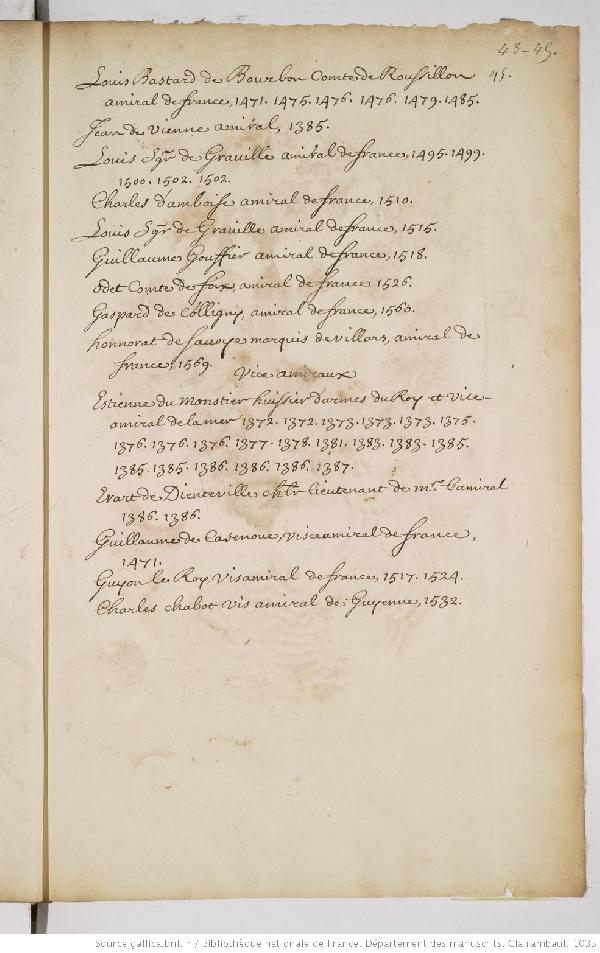 43-45.
45.
Louis Bastard de Bourbon Comte de Roussillon
amiral de france, 1471. 1475. 1476. 1476. 1479. 1485.
Jean de Vienne amiral, 1385.
Louis Sgr de Graville amiral de france, 1495. 1499.
1500. 1502. 1502.
Charles d'amboise amiral de france, 1510.
Louis Sgr de Graville amiral de france, 1515.
Guillaume Gouffier amiral de france, 1518.
Odet Comte de foix, amiral de france 1526.
Gaspard de Colligny, amiral de france, 1560.
honnorat de Savoye marquis de villars, amiral de
france, 1569.
Vice amiraux
Estienne du Monstier huissier d'armes du Roy et vice
amiral de la mer 1372. 1372. 1373. 1373. 1373. 1375.
1376. 1376. 1376. 1377. 1378. 1381. 1383. 1383. 1385.
1385. 1385. 1386. 1386. 1386. 1387.
Evart de Dienteville chlr lieutenant de mr. l'amiral
1386. 1386.
Guillaume de Casenove, visceamiral de france,
1471.
Guyon le Roy, visamiral de france, 1517. 1524.
Charles chabot vis amiral de Guyenne, 1532.
Source gallica.bnf.fr / Bibliothèque nationale de France. Département des manuscrits. Clairambault 1035